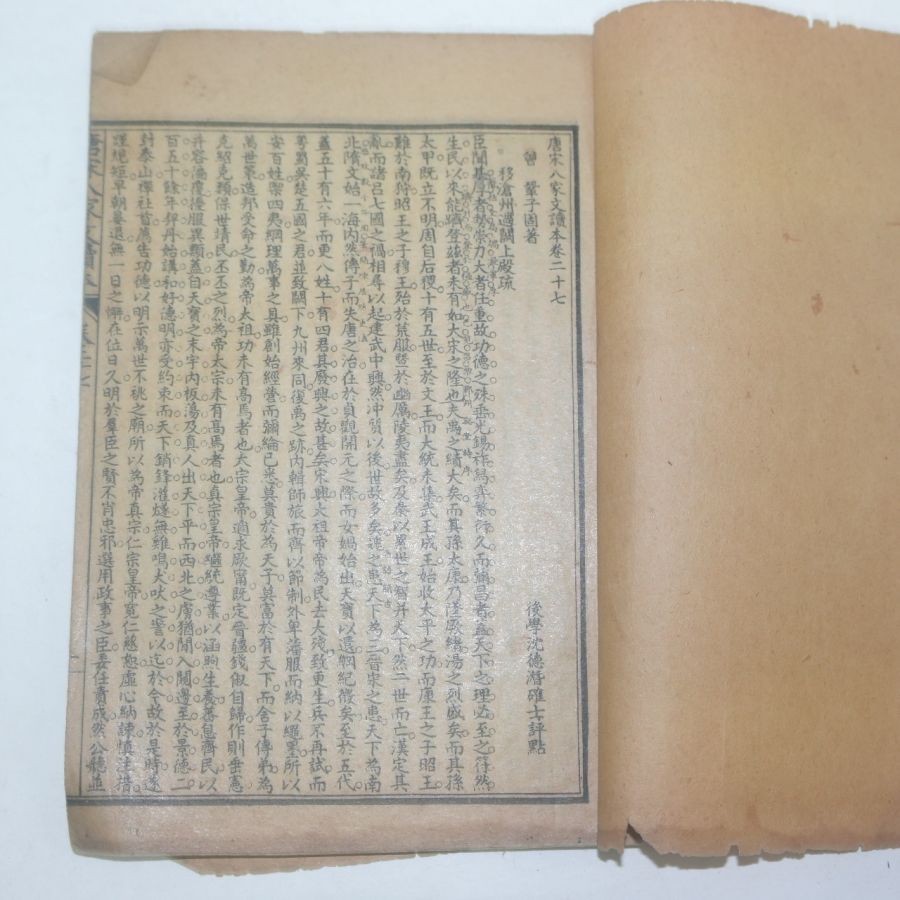 唐宋八家文讀本卷二十七
曾鞏子固著
後學沈德潛確士評點
移滄州過闕上殿疏
臣聞基厚者勢崇力大者任重故功德之殊垂光錫祚舄奕繁衍久而彌昌者蓋天下之理必至之符然
生民以來能躋登茲者未有如大宋之隆也夫禹之績大矣而其孫太康乃墜厥緒湯之烈盛矣而其孫
太甲既立不明周自后稷十有五世至於文王而大統未集武王成王始收太平之功而康王之子昭王
難於南狩昭王之子穆王殆於荒服暨於幽厲陵夷盡矣及秦以累世之智并天下然二世而亡漢定其
亂而諸呂七國之禍相尋以起建武中興然沖質以後世故多矣魏之患天下為三晉宋之患天下為南
北隋文始一海內然傳子而失唐之治在於貞觀開元之際而女禍始出天寶以還綱紀微矣至於五代
蓋五十有六年而更八姓十有四君其廢興之故甚矣宋興太祖皇帝為民去大殘致更生兵不再試而
粵蜀吳楚五國之君並致闕下九州來同復禹之跡內輯師旅而齊以節制外卑藩服而納以繩墨所以
安百姓禦四夷綱理萬事之具雖創始經營而彌綸已悉莫貴於為天子莫富於有天下而舍子傳弟為
萬世策造邦受命之勤為帝太祖功未有高焉者也太宗皇帝遹求厥寧既定晉疆錢俶自歸作則垂憲
克紹克類保世靖民丕丕之烈為帝太宗未有高焉者也真宗皇帝繼統遵業以涵煦生養蕃息齊民以
并容徧覆擾服異類蓋自天寶之末宇內板蕩及真人出天下平而西北之虜猶間入闚邊至於景德二
百五十餘年契丹始講和好德明亦受約束而天下銷鋒灌燧無雞鳴犬吠之警以迄於今故於是時遂
封泰山禪社首薦告功德以明示萬世不祧之廟所以為帝真宗仁宗皇帝寬仁慈恕虛心納諫慎注措
謹規矩早朝晏退無一日之懈在位日久明於羣臣之賢不肖忠邪選用政事之臣委任責成然公聽並
唐宋八家文讀本
卷二十七